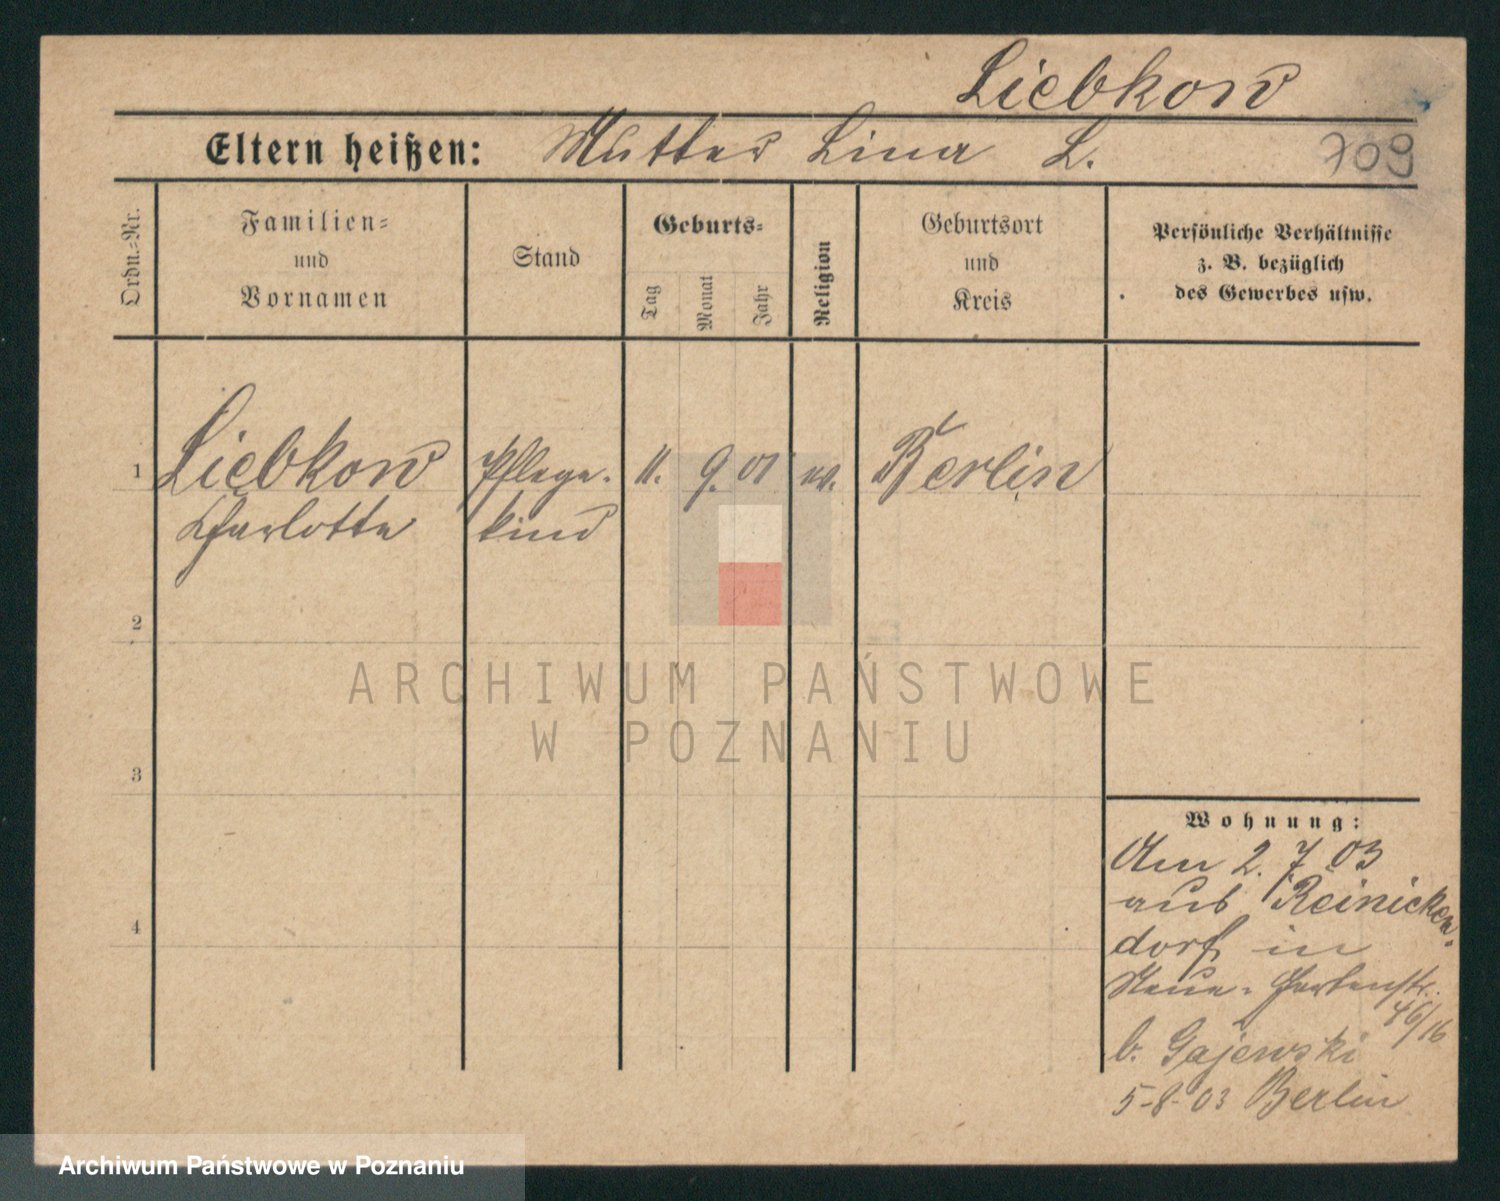 Liebkow
Eltern heißen: Mutter Lina L.
709
Ordn.=Nr.
Familien=
und
Vornamen
Stand
Geburts=
Tag
Monat
Jahr
Religion
Geburtsort
und
Kreis
Persönliche Verhältnisse
z. B. bezüglich
des Gewerbes usw.
1
Liebkow Pflege- 11. 9. 01 ev. Berlin
Charlotte kind
2
3
4
Wohnung:
Am 2. 7. 03
aus Reinicken-
dorf in
Neue-Gartenstr.
46/16
b. Gajewski
5-8-03 Berlin
ARCHIWUM PAŃSTWOWE
W POZNANIU
Archiwum Państwowe w Poznaniu